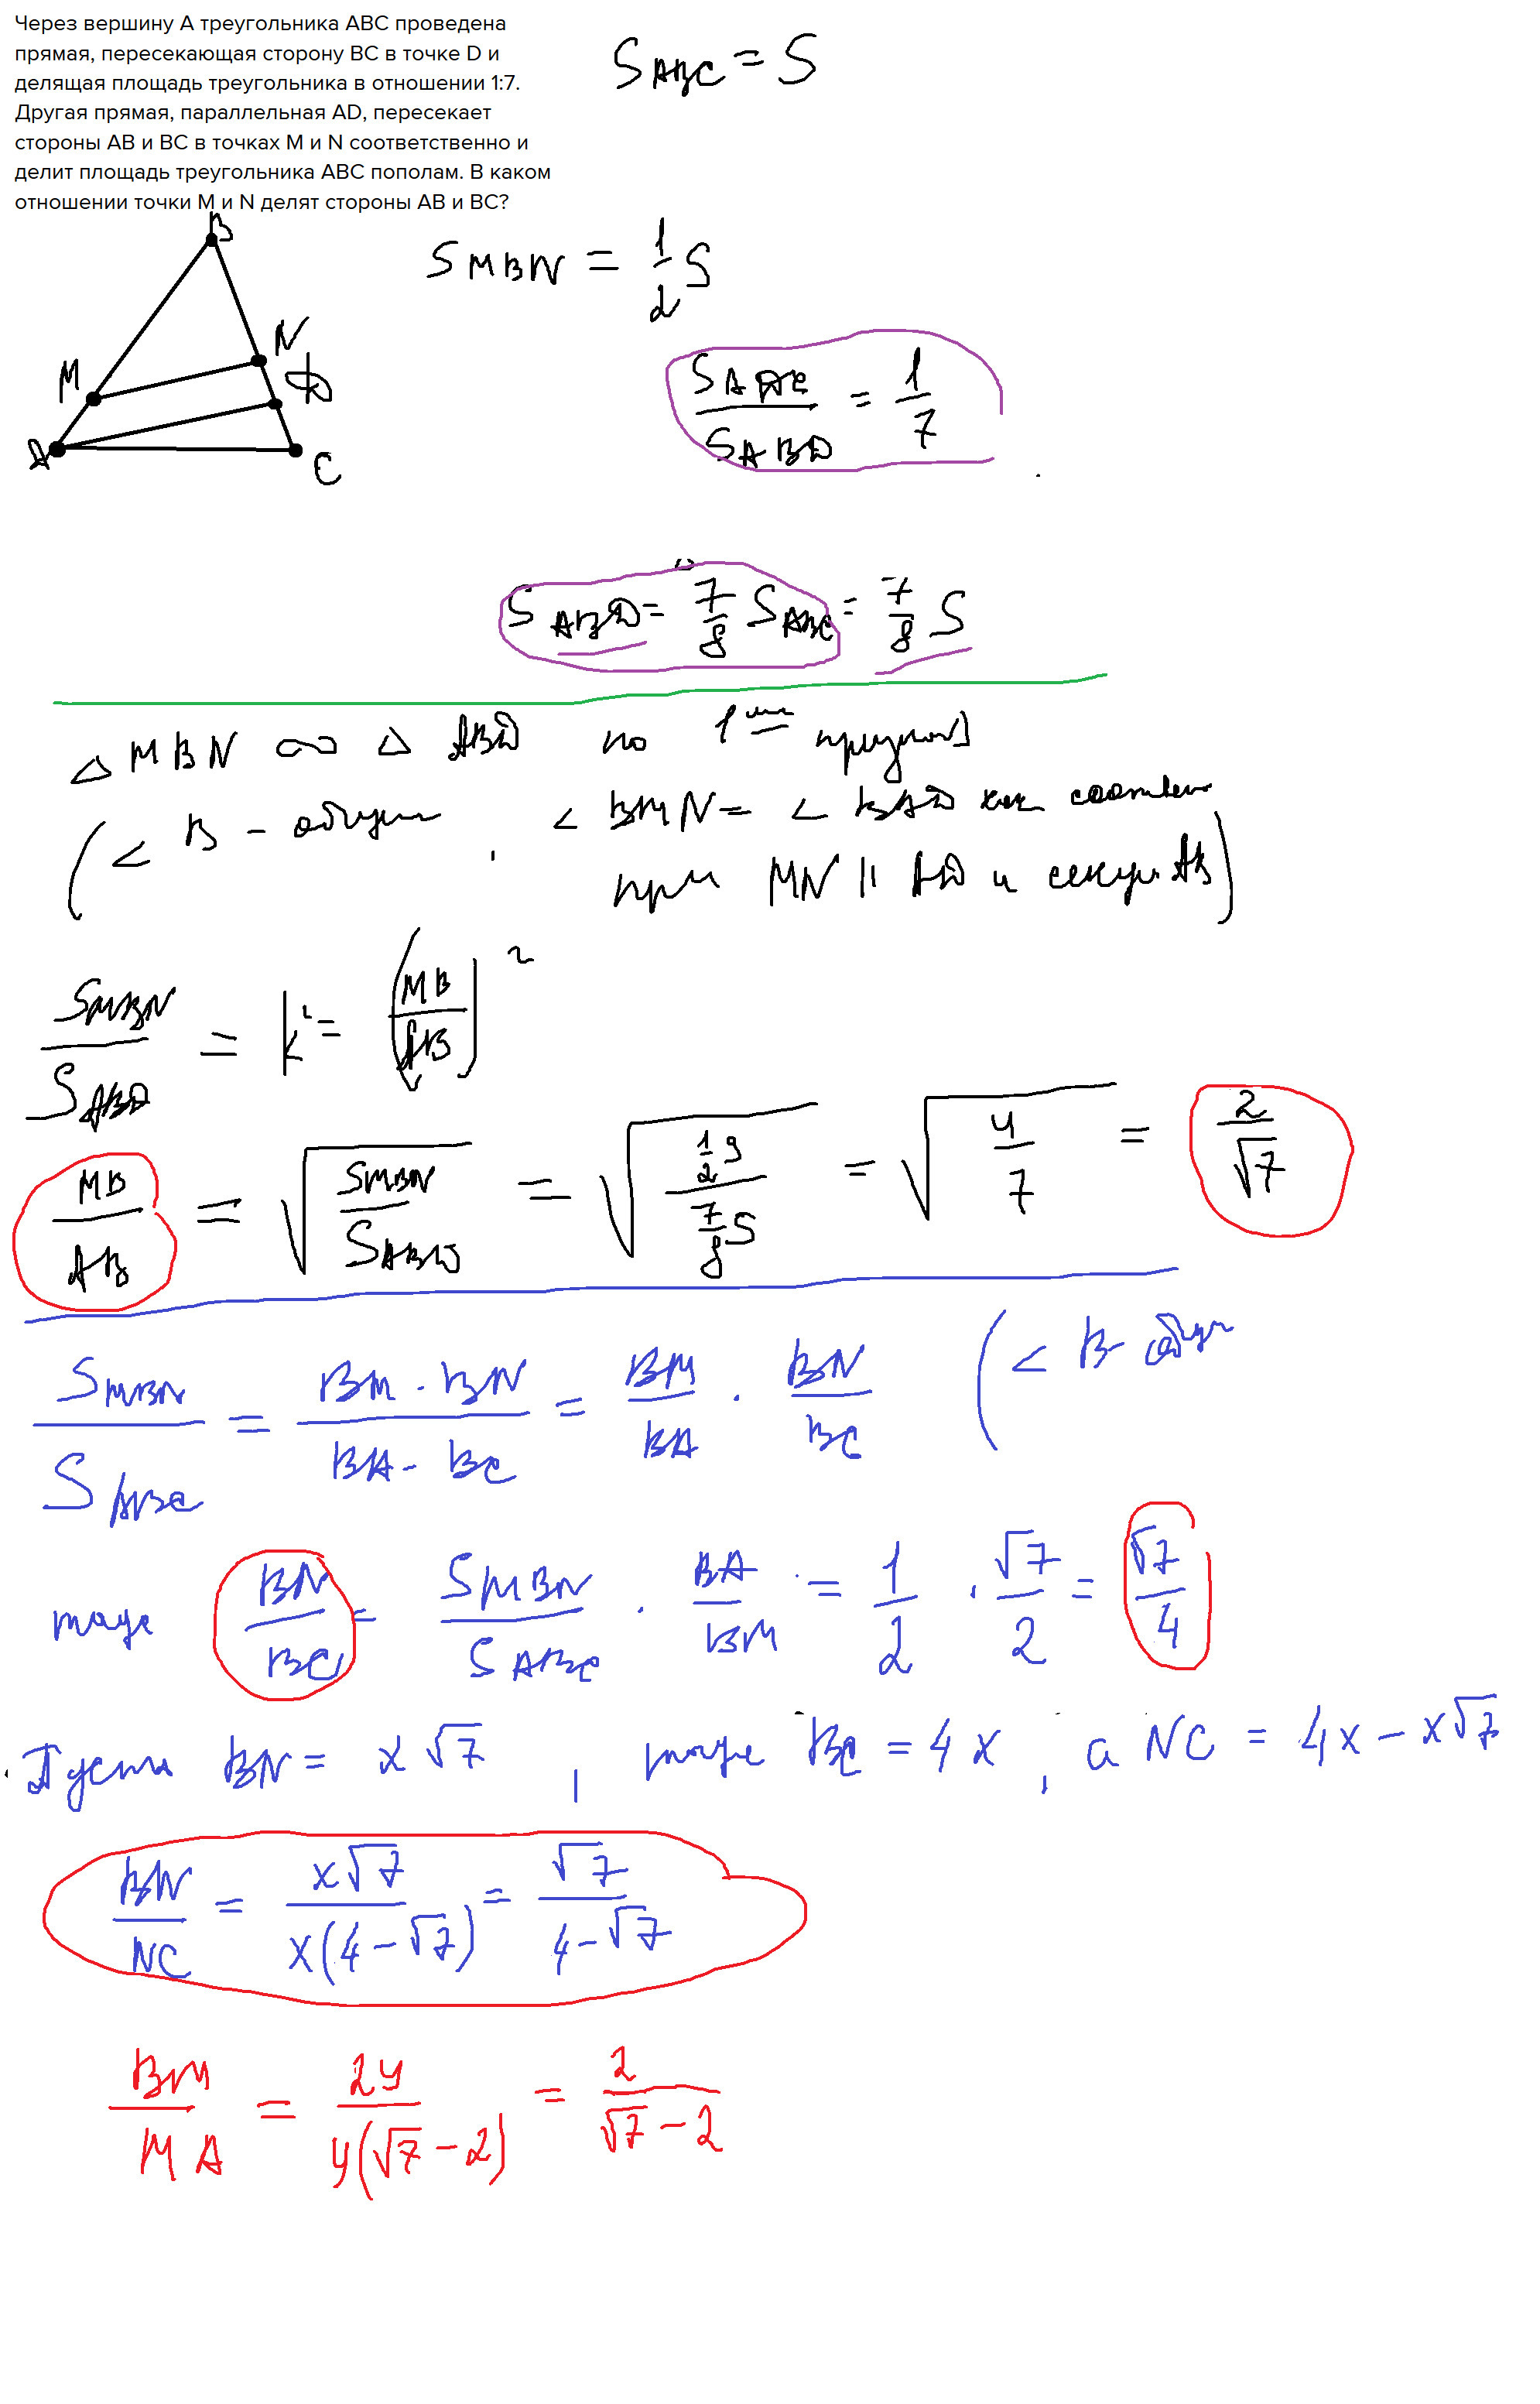 Через вершину А треугольника ABC проведена
прямая, пересекающая сторону BC в точке D и
делящая площадь треугольника в отношении 1:7.
Другая прямая, параллельная AD, пересекает
стороны AB и BC в точках M и N соответственно и
делит площадь треугольника ABC пополам. В каком
отношении точки M и N делят стороны AB и BC?
S ABC = S
B
M
N
D
A
C
S MBN = 1/2 S
S ADC / S ABD = 1/7
S ABD = 7/8 S ABC = 7/8 S
△ MBN ∞ △ ABD по 1
(< B - общий, < BMN = < BAD как соответ
при MN || AD и секущ AB)
S MBN / S ABD = k² = (MB / AB)²
MB / AB = √(S MBN / S ABD) = √(1/2 S / 7/8 S) = √(4/7) = 2/√7
S MBN / S ABC = BM · BN / BA · BC = BM/BA · BN/BC (< B - общ
тогда BN/BC = S MBN / S ABC · BA/BM = 1/2 · √7/2 = √7/4
Пусть BN = x√7, тогда BC = 4x, а NC = 4x - x√7
BN/NC = x√7 / x(4-√7) = √7 / 4-√7
BM/MA = 2y / y(√7-2) = 2 / √7-2